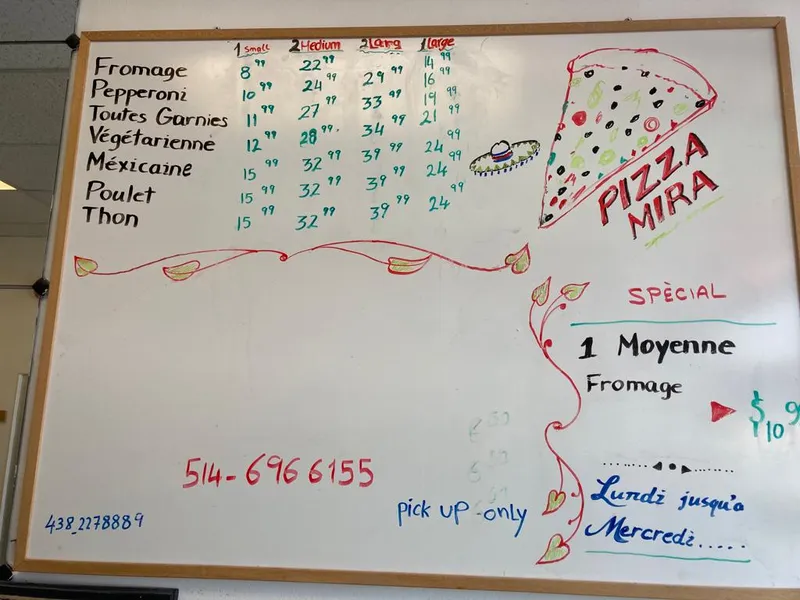 1 Small 2 Medium 2 Larg 1 Large
Fromage 8 99 22 99 14 99
Pepperoni 10 99 24 99 29 99 16 99
Toutes Garnies 11 99 27 99 33 99 19 99
Végétarienne 12 99 28 99 34 99 21 99
Méxicaine 15 99 32 99 39 99 24 99
Poulet 15 99 32 99 39 99 24 99
Thon 15 99 32 99 39 99 24 99
PIZZA
MIRA
SPÈCIAL
1 Moyenne
Fromage
$10 9
Lundi jusqu'a
Mercredi.....
514-696 6155
pick up only
438_2278889